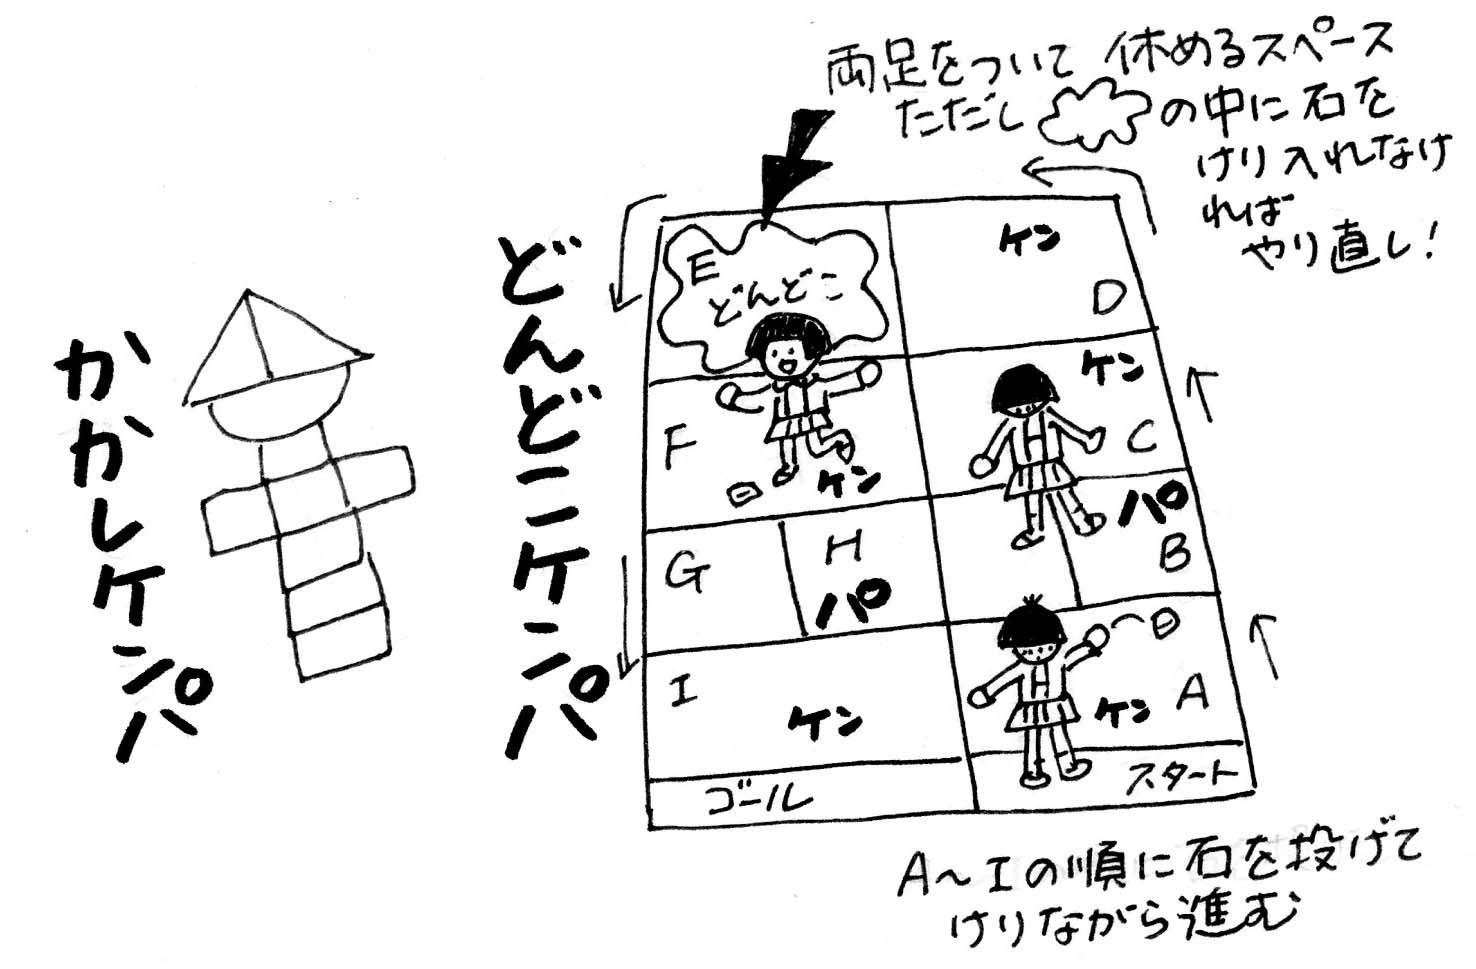 両足をついて 休めるスペース
ただし の中に石を
けり入れなけ
れば
やり直し!
どんどこケンパ
かかしケンパ
E
どんどこ
ケン
D
ケン
C
F
ケン
パ
B
G
H
パ
I
ケン
ケン
A
ゴール
スタート
A〜Iの順に石を投げて
けりながら進む